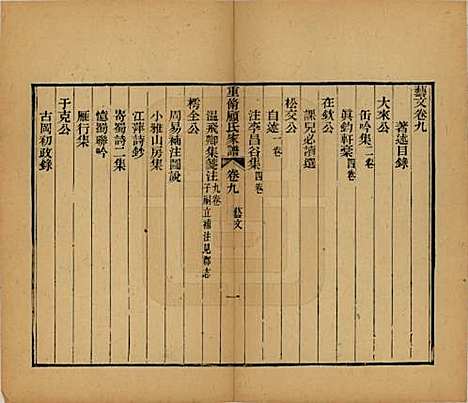 藝文卷九
著述目錄
大來公
缶吟集二卷
眞鈞軒藁四卷
在欽公
課兒必讀選
松交公
自述一卷
注李昌谷集四卷
重脩顧氏家譜 卷九 藝文 一
溫飛卿集箋注九卷子嗣立補注見郡志
楞全公
周易粹注圖說
小雅山房集
江萍詩鈔
寄蜀詩二集
憶湯聯吟
雁行集
于克公
古岡初政錄